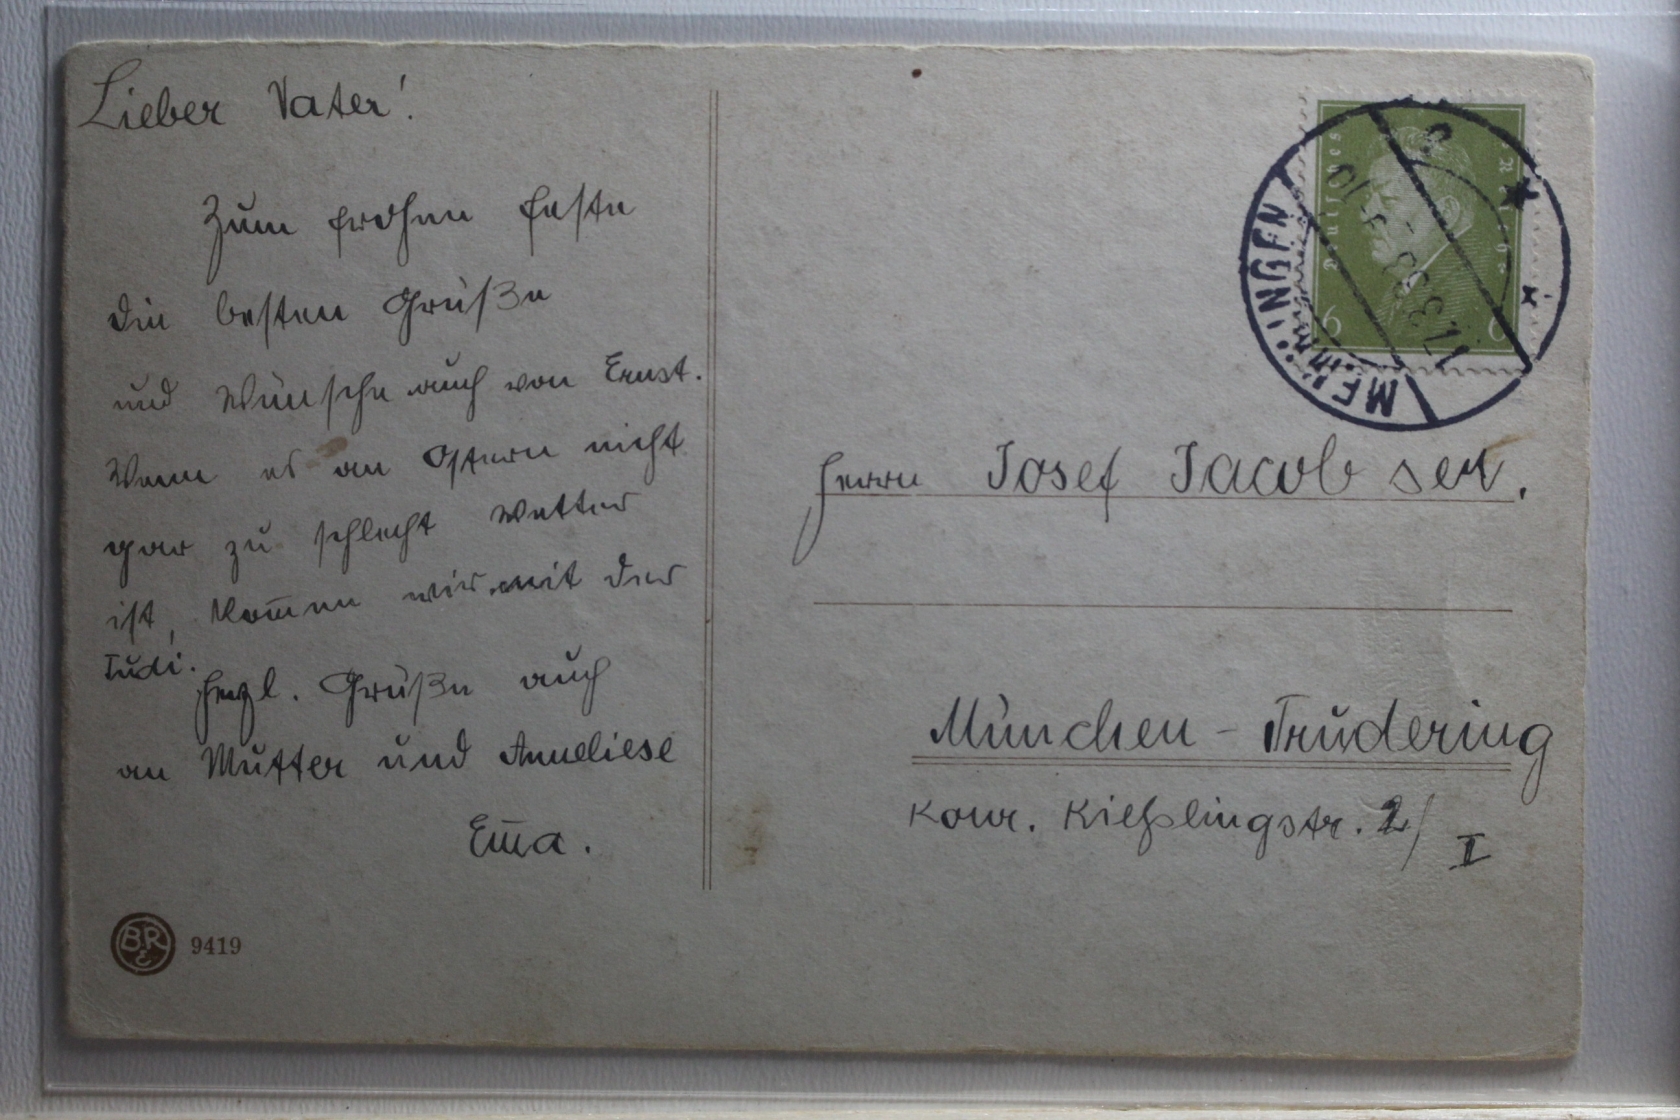 Lieber Vater!
Zum frohen Feste
die besten Grüße
und Wünsche auch von Ernst.
Wenn es an Ostern nicht
gar zu schlecht Wetter
ist, kom̅en wir mit der
Tudi.
Herzl. Grüße auch
an Mutter und Anneliese
Em̅a.
BRE 9419
Deutsches Reich
6 6
MEMMINGEN
17.3.33
Herrn Josef Jacob sen.
München - Trudering
Konr. Kießlingstr. 2/I